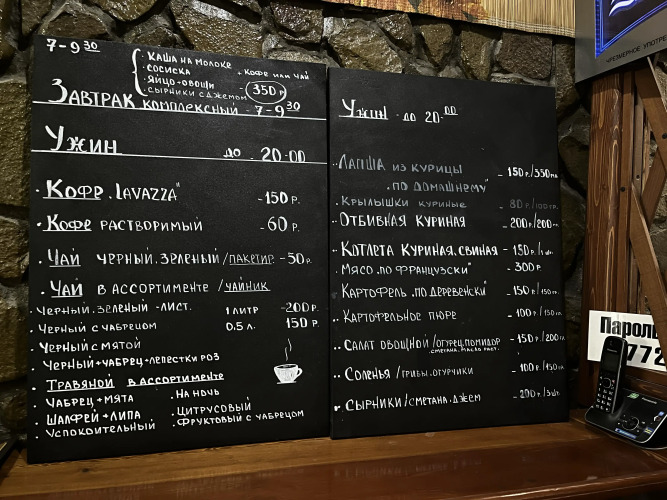 7-9 30
• Каша на молоке
• Сосиска + кофе или чай
• Яйцо-овощи
• Сырники с джемом - 350 р
Завтрак комплексный - 7-9 30
Ужин до 20-00
• Кофе "Lavazza" - 150 р.
• Кофе растворимый - 60 р.
• Чай черный.зеленый /пакетир. - 50 р.
• Чай в ассортименте /чайник
• Черный.зеленый - лист. 1 литр - 200 р.
• Черный с чабрецом 0.5 л. 150 р.
• Черный с мятой
• Черный+чабрец+лепестки роз
• Травяной в ассортименте
• Чабрец+мята . На ночь
• Шалфей+липа . Цитрусовый
• Успокоительный . Фруктовый с чабрецом
Ужин до 20-00
Лапша из курицы
"по домашнему" - 150 р./350
Крылышки куриные - 80 р./100 гр.
Отбивная куриная - 200 р./200
Котлета куриная.свиная - 150 р./
Мясо "по французски" - 300 р.
Картофель "по деревенски" - 150 р./150
Картофельное пюре - 100 р./150
Салат овощной /огурец.помидор - 150 р./200
сметана.масло раст.
Соленья /грибы.огурчики - 100 р./150
Сырники /сметана.джем - 200 р./3 шт.
Пароль
772
Panasonic